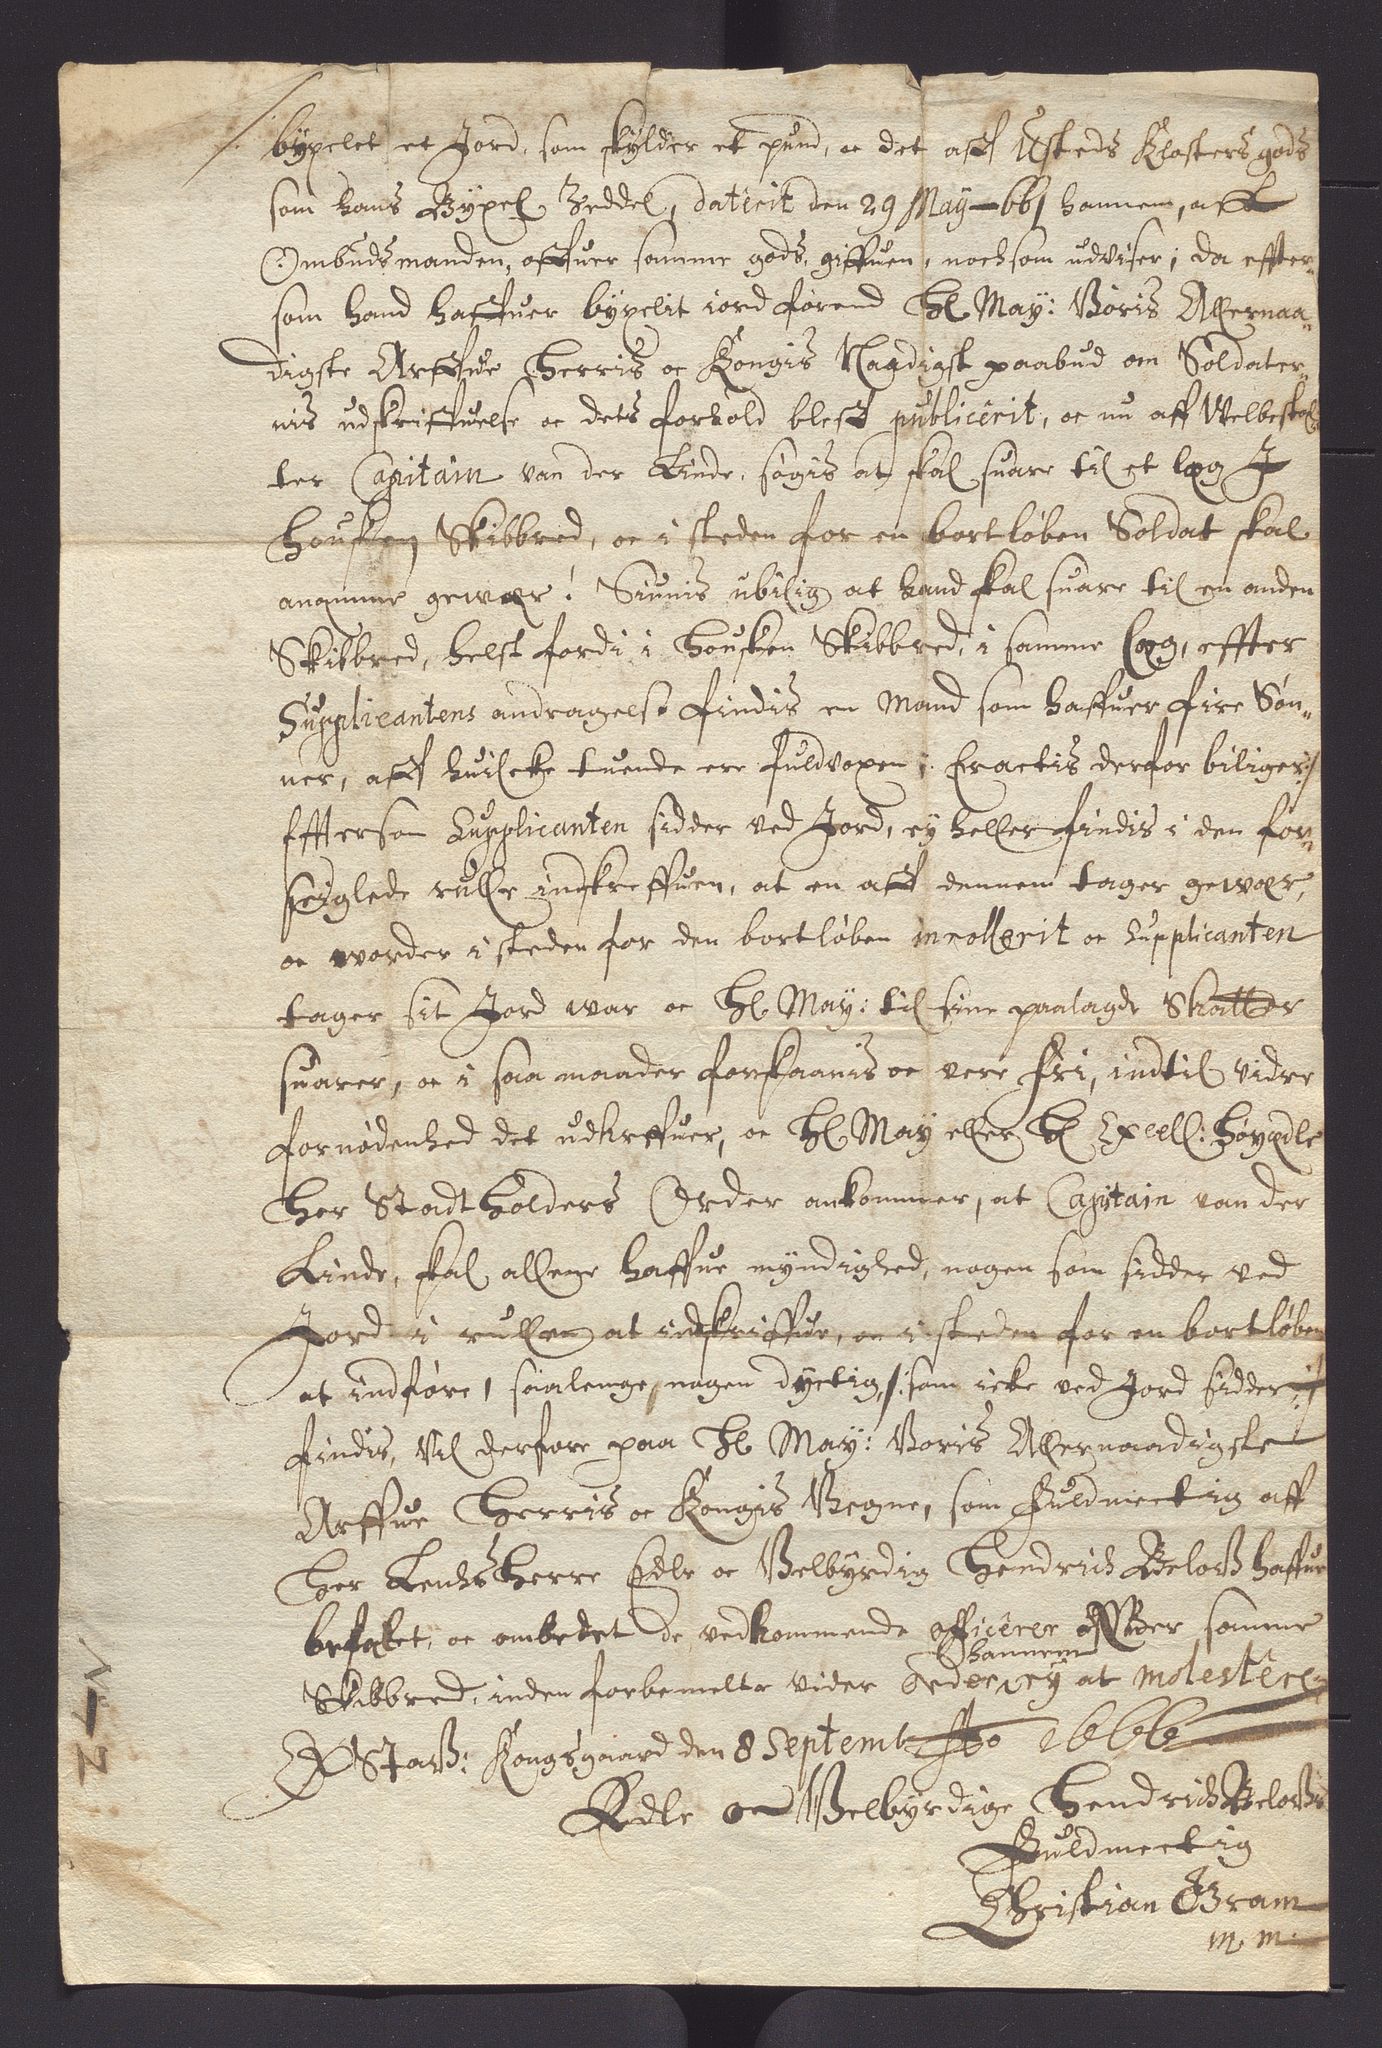 byxelet et Jord, som skylder et pund, oc det aff Usteds Klosters gods
som hans Byxel Zeddel, daterit den 29 May 661 hannem, aff
Ombudsmanden, offuer samme gods, giffuen, nochsom udviser; da effter-
som hand haffuer byxelit iord førend Hs. May: Voris Allernaa-
digste Arffue Herris oc Kongis Naadigst paabud om Soldater-
nis udskriffuelse oc dets forhold bleff publicerit, oc nu aff Welbeskic
ter Capitain van der Linde, søgis at skal suare til et læg J
Housken Skibbred, oc i steden for en bortløben Soldat skal
anamme gewær! Siunis ubilig at hand skal suare til en anden
Skibbred, helst fordi i Housken Skibbred, i samme læg, effter
Supplicantens andragelse findis en Mand som haffuer fire Søn-
ner, aff huilcke tuende ere fuldvoxen; Eractis derfor biliger:/
Efftersom Supplicanten sidder ved Jord, ey heller findis i den for-
seiglede rulle indskreffuen, at en aff dennem tager gewær,
oc worder i steden for den bortløben inrollerit oc Supplicanten
tager sit Jord war oc Hs. May: til sine paalagde Skatter
suarer, oc i saa maader forskaanis oc vere fri, indtil vidre
fornødenhed det udkreffuer, oc Hs. May eller Hs Excell: Høyædle
Her Stadtholders Order ankommer, at Capitain van der
Linde, skal allene haffue myndighed, nogen som sidder ved
Jord i rullen at indskriffue, oc i steden for en bortløben
at indføre, saalenge nogen dyctig /: som icke ved Jord sidder :/
findis, Vil derfore paa Hs May: Voris Allernaadigste
Arffue Herris oc Kongis Vegne, som Fuldmectig aff
Her Lenhs Herre Edle oc Velbyrdig Hendrich Belouß haffue
befalet, oc ombedet de vedkommende officerer offuer samme
hannem
Skibbred, inden forbemelte vider Order, ey at molestere.
Staff: Kongsgaard den 8 Septemb Ao 1666
Edle oc Velbyrdige Hendrich Beloußis
Fuldmectig
Christian Gram
m. m.
N-2